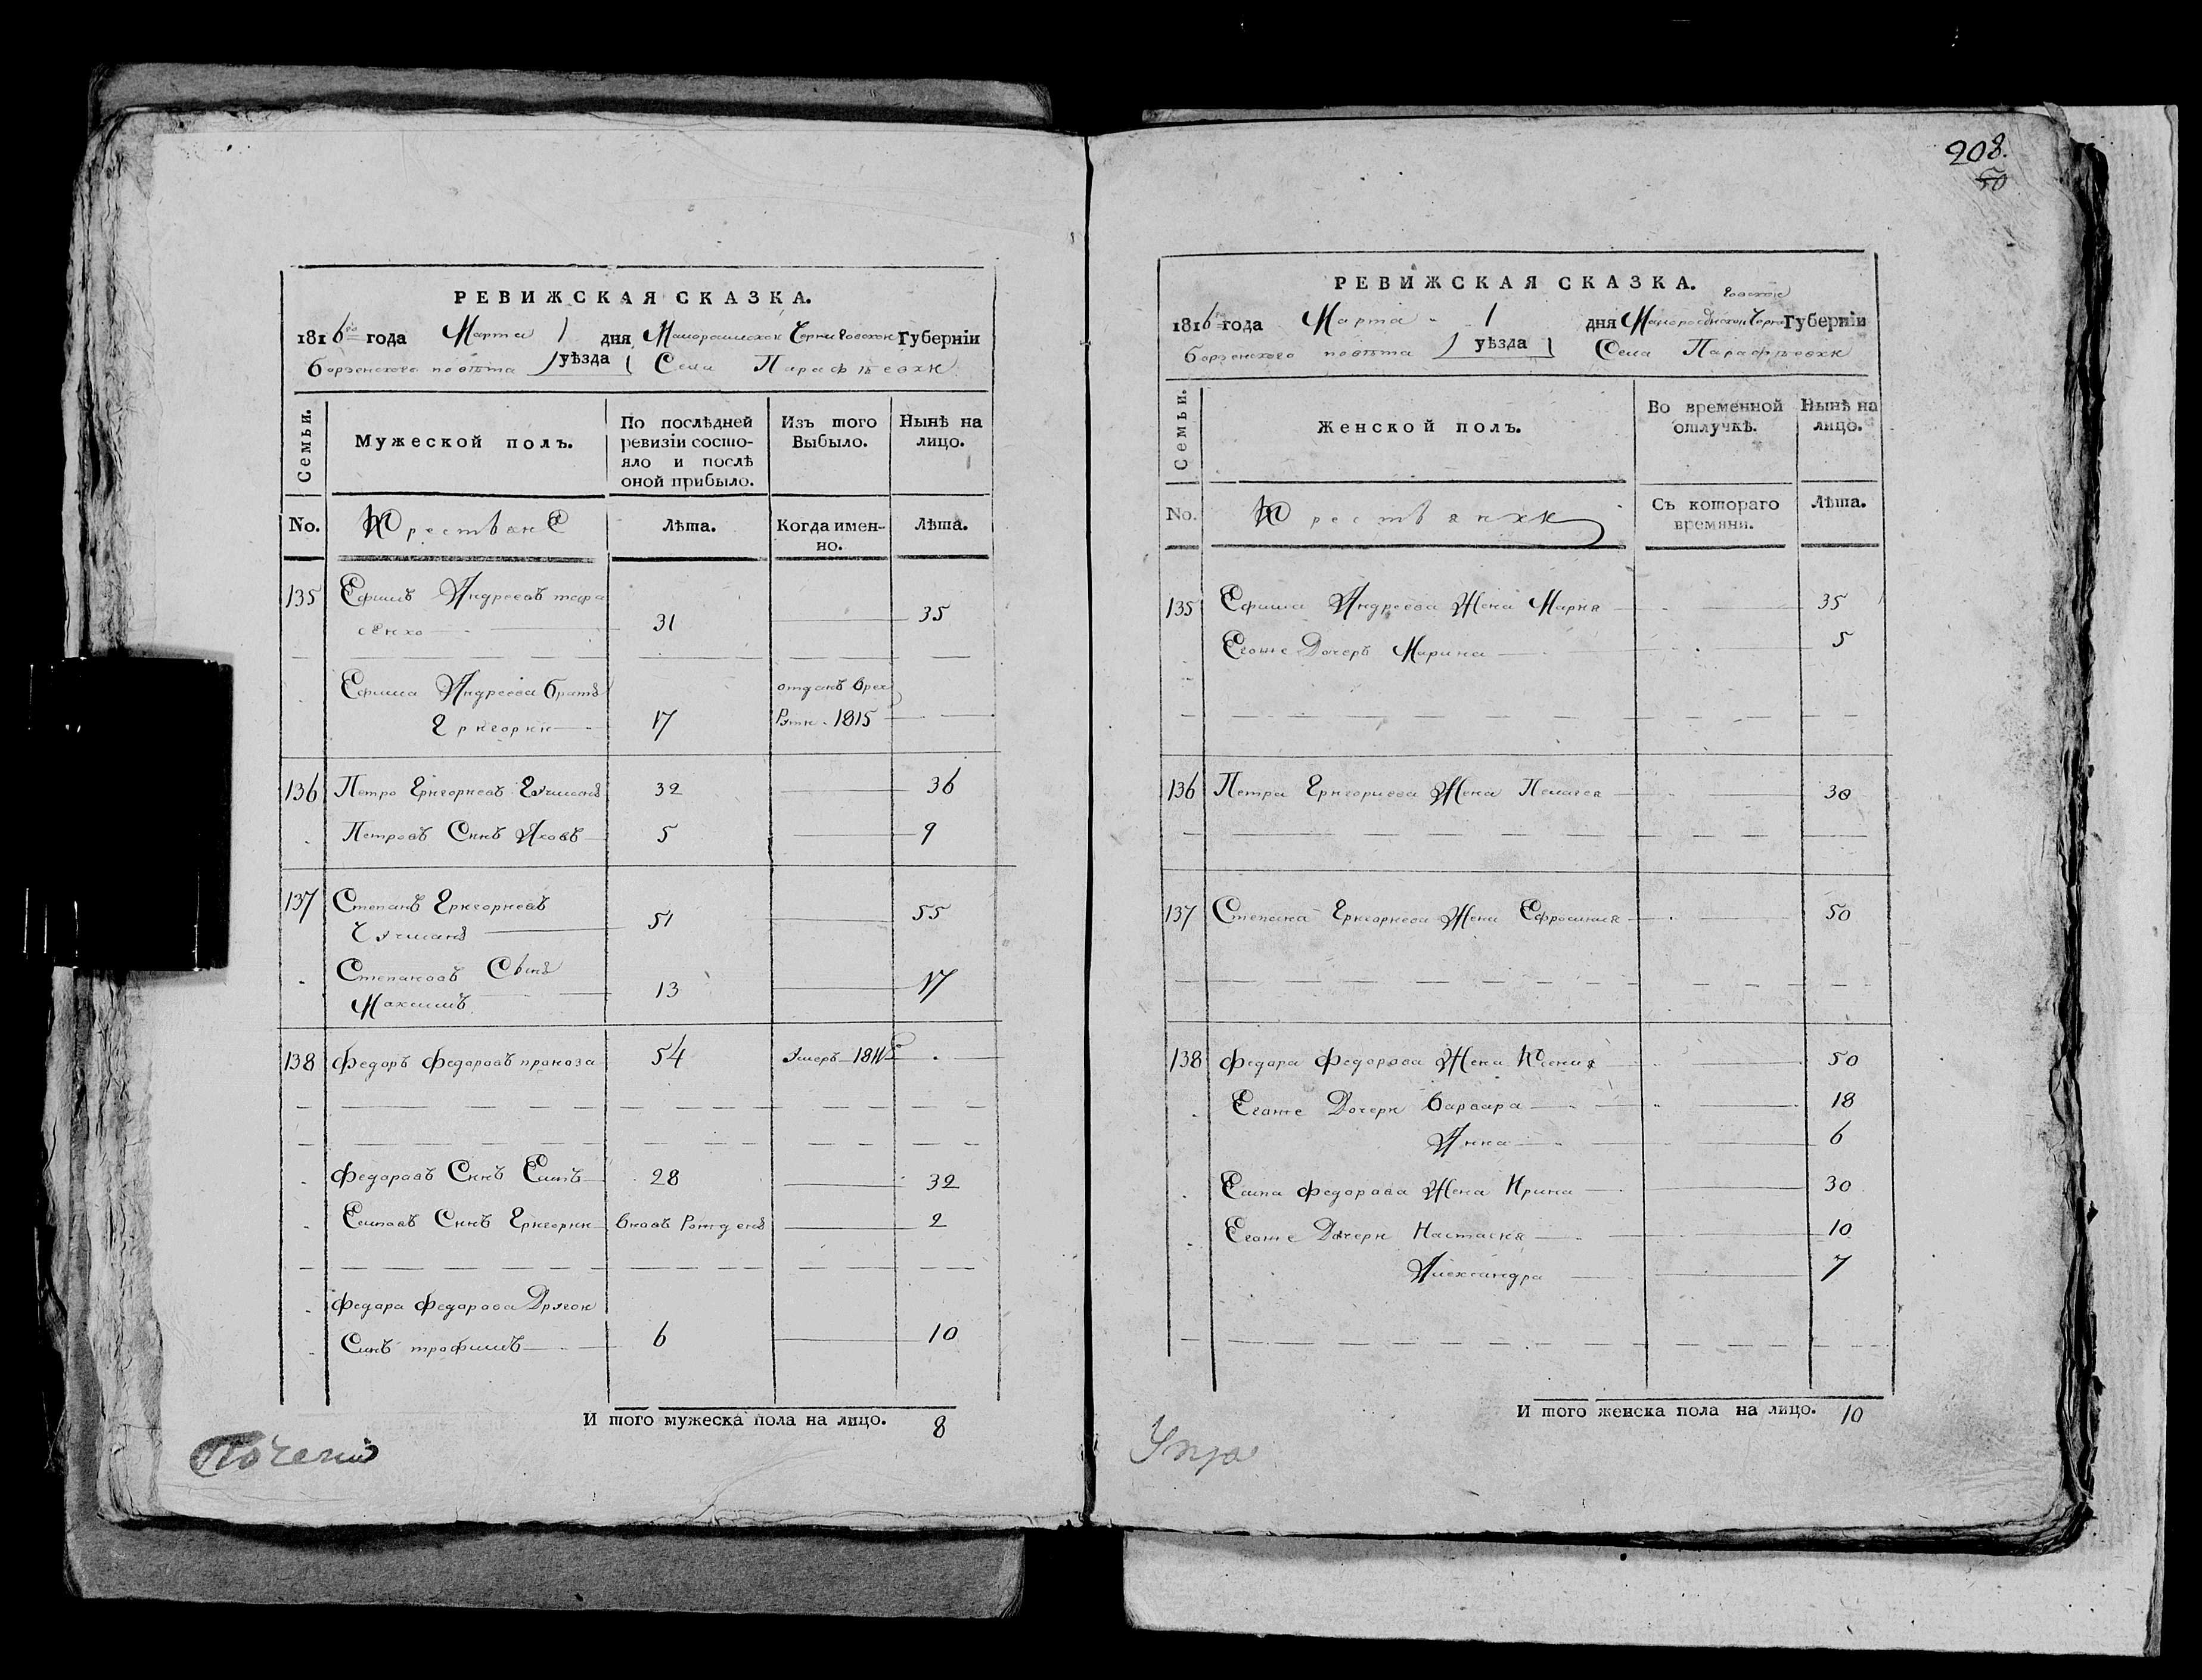 РЕВИЖСКАЯ СКАЗКА.
1816го года Марта 1 дня Малоросийской Черниговской Губерніи
Борзенского повѣта уѣзда Села Парафѣевки
Семьи.
Мужеской полъ.
По послѣдней ревизіи состояло и послѣ оной прибыло.
Изъ того Выбыло.
Нынѣ на лицо.
No.
Крестьяне
Лѣта.
Когда именно.
Лѣта.
135 Ефимъ Андреевъ тара
сенко 31 35
Ефима Андреева братъ отданъ врек
Григорий 17 Руты 1815
136 Петро Григориевъ 32 36
Петровъ Синъ Яковъ 5 9
137 Степанъ Григориевъ
51 55
Степановъ Сынъ
Максимъ 13 17
138 Федоръ Федоровъ проноза 54 Умеръ
Федоровъ Синъ Есипъ 28 32
Есиповъ Синъ Григорий вновь Рожденъ 2
Федора Федорова Другой
Синъ трофимъ 6 10
И того мужеска пола на лицо. 8
208.
50
РЕВИЖСКАЯ СКАЗКА.
1816го года Марта 1 дня Малоросийской Черниговской Губерніи
Борзенского повѣта уѣзда Села Парафѣевки
Семьи.
Женской полъ.
Во временной отлучкѣ.
Нынѣ на лицо.
No.
Крестьянки
Съ котораго времяни.
Лѣта.
135 Ефима Андреева Жена Мария 35
Егоже Дочерь Марина 5
136 Петра Григориева Жена Пелагея 30
137 Степана Григориева Жена Ефросиния 50
138 Федора Федорова Жена Ксения 50
Егоже Дочери Варвара 18
Анна 6
Есипа Федорова Жена Ирина 30
Егоже Дочери Настасия 10
Александра 7
И того женска пола на лицо. 10